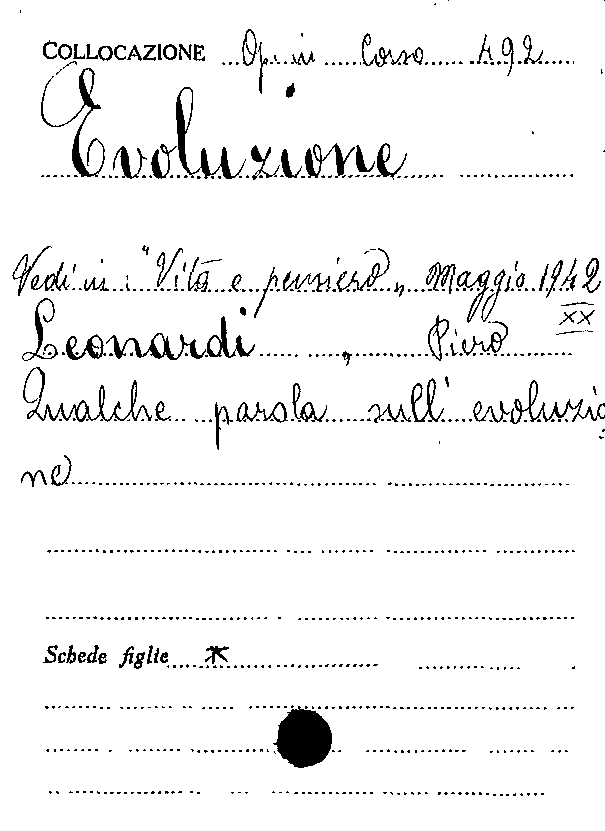 COLLOCAZIONE Op. in Corso 492
Evoluzione
Vedi in: "Vita e pensiero„ Maggio 1942
XX
Leonardi, Piero
Qualche parola sull'evoluzio
ne
Schede figlie *